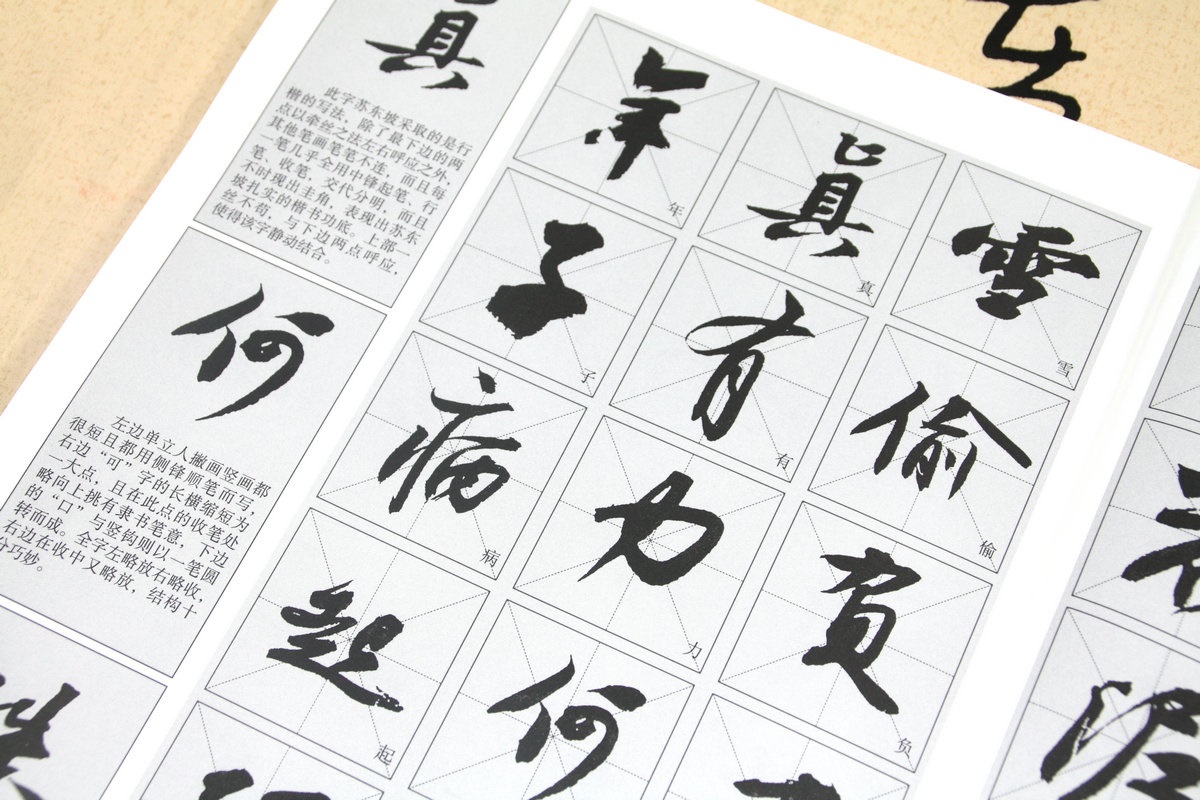 真
此字苏东坡采取的是行
楷的写法，除了最下边的两
点以牵丝之法左右呼应之外，
其他笔画笔笔不连，而且每
一笔几乎全用中锋起笔、行
笔、收笔，交代分明，而且
不时现出圭角，表现出苏东
坡扎实的楷书功底。上部一
丝不苟，与下边两点呼应，
使得该字静动结合。
何
左边单立人撇画竖画都
很短且都用侧锋顺笔而写，
右边“可”字的长横缩短为
一大点，且在此点的收笔处
略向上挑有隶书笔意，下边
的“口”与竖钩则以一笔圆
转而成。全字左略放右略收，
右边在收中又略放，结构十
分巧妙。
年
年
真
真
雪
雪
子
子
有
有
偷
偷
病
病
力
力
負
负
起
起
何